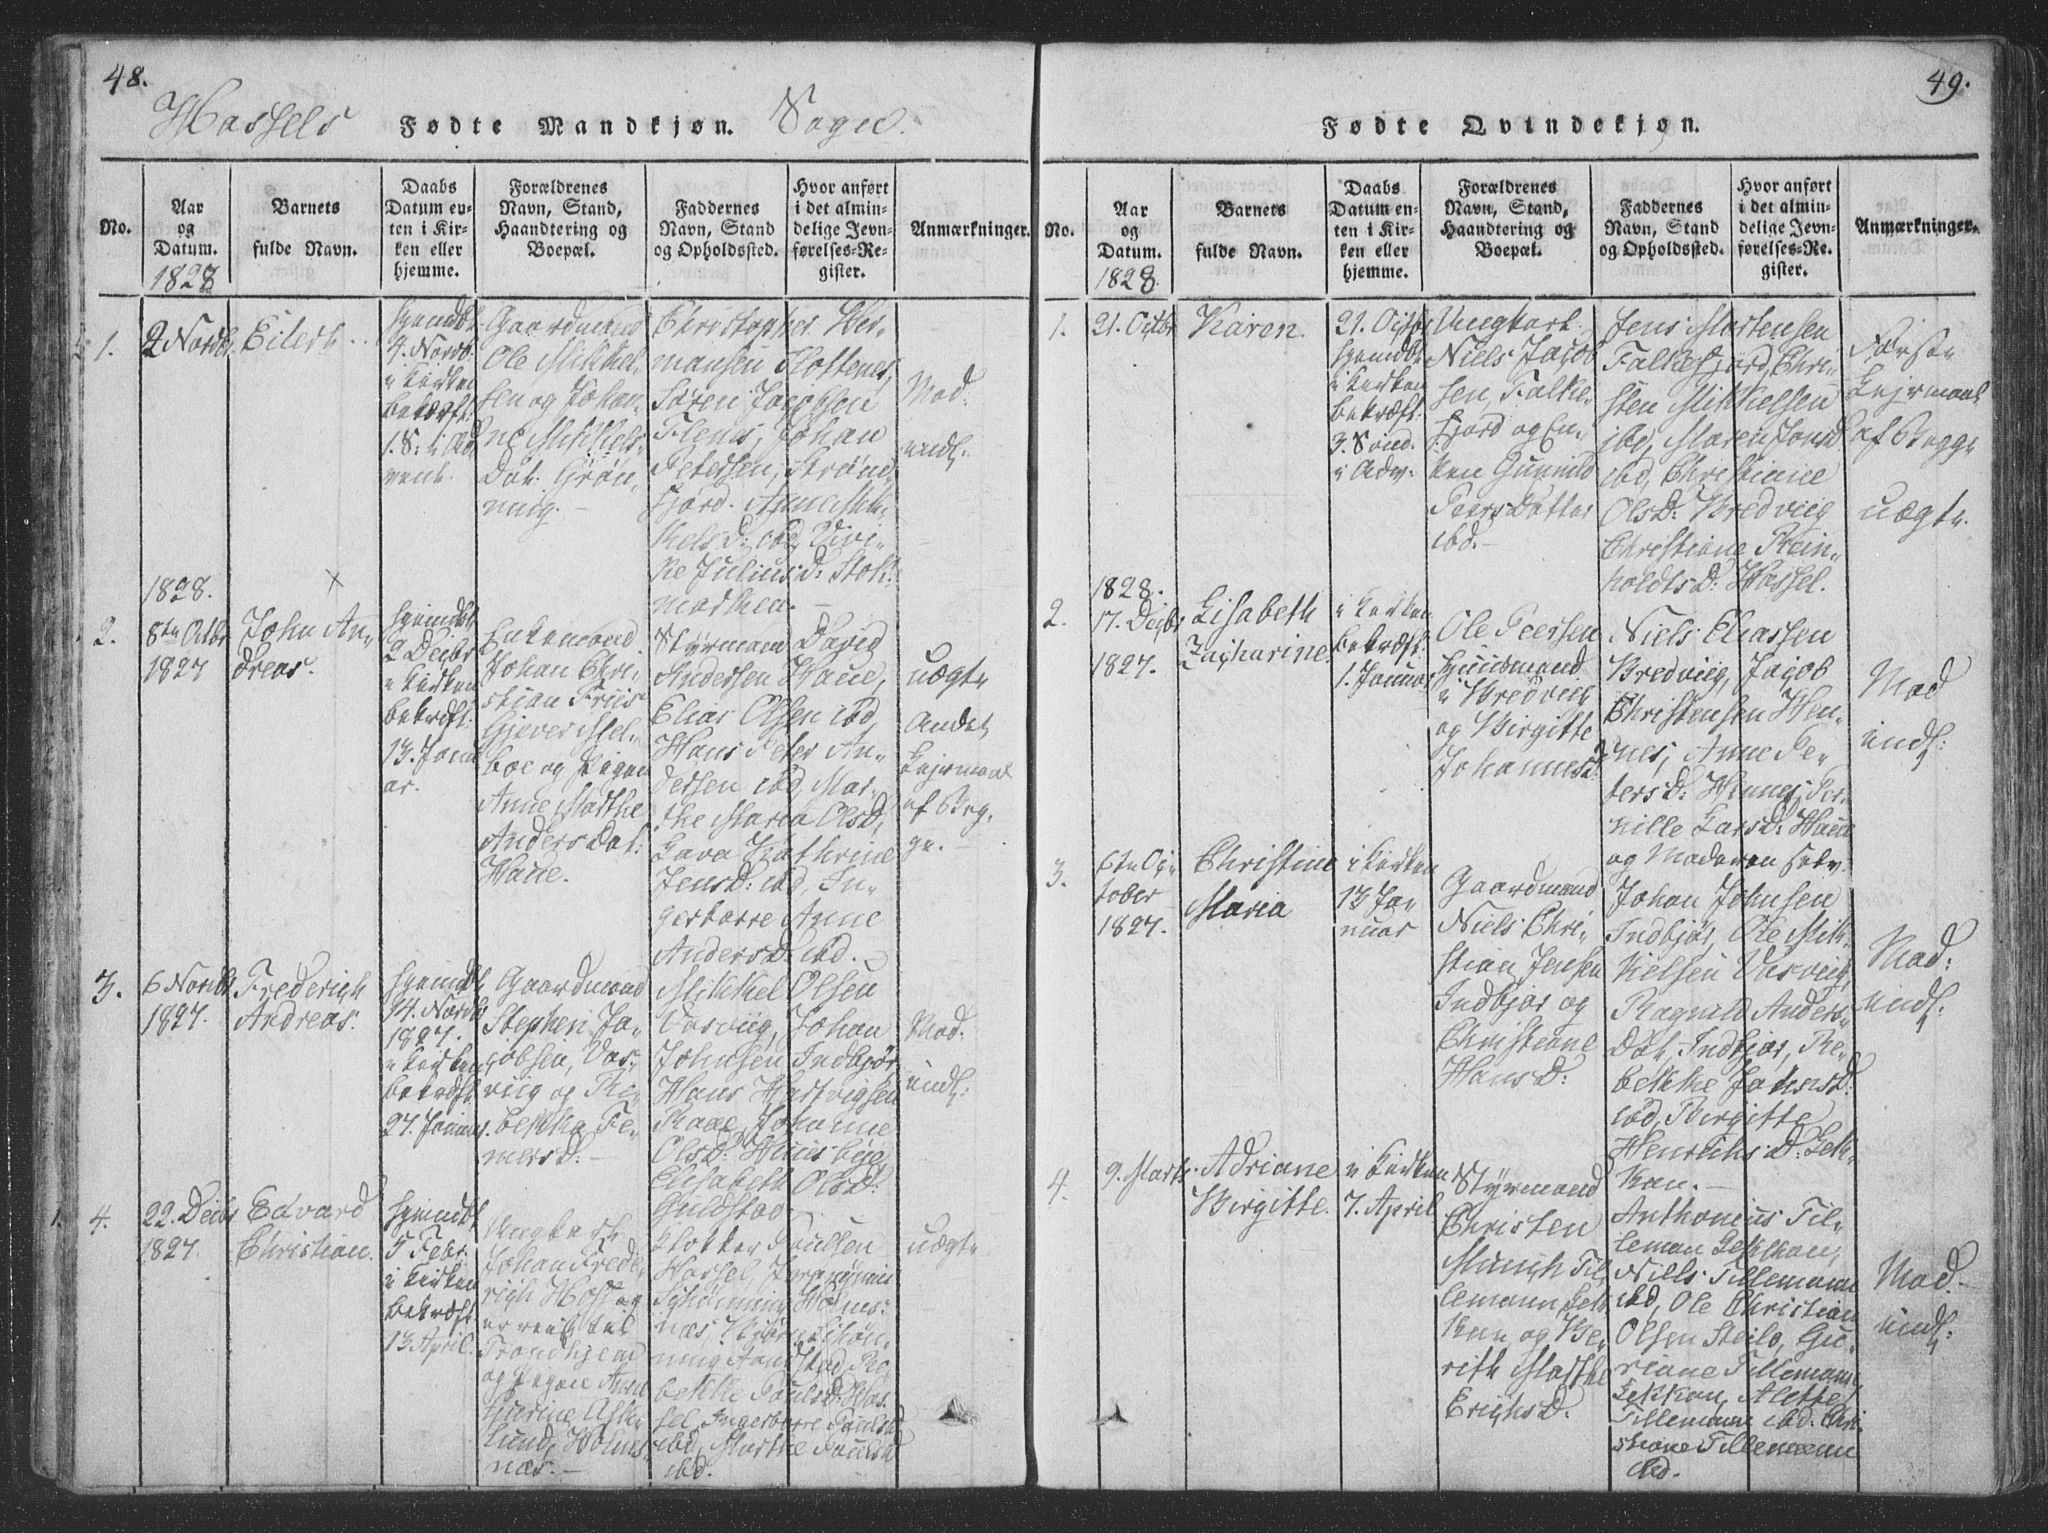 48.
Hassels Fødte Mandkjøn. Sogn.
No.
Aar
og
Datum.
Barnets
fulde Navn.
Daabs
Datum en-
ten i Kir-
ken eller
hjemme.
Forældrenes
Navn, Stand,
Haandtering og
Boepæl.
Faddernes
Navn, Stand
og Opholdssted.
Hvor anført
i det almin-
delige Jevn-
førelses-Re-
gister.
Anmærkninger.
1828
1.
2 Novbr
Eilert
hjemdbt
4. Novb.
i Kirken
bekræft.
1. S. i Ad
vent.
Gaardmand
Ole Mikkel-
sen og Johan-
ne Mikkels-
Dat. Grøn-
ning.
Christopher Her-
mansen Flottenes,
Søren Jacobsen
Flenes, Johan
Petersen, Strønd-
fjord. Anne Mik-
kelsD: ibd, Vivi-
ke JuliusD: Stok-
marknen.
Mod:
indl.
1828.
2.
8de Octbr
1827
John An-
dreas.
hjemdbt
2 Decbr
i Kirken
bekræft.
13. Janu
ar.
Enkemand
Johan Chri-
stian Friis
Gjever Mel-
boe og Pigen
Anne Marthe
Anders Dat:
Haue.
Styrmand David
Andersen Haue,
Elias Olsen ibd,
Hans Peter An-
dersen ibd, Mar-
the Maria OlsD,
Lava Kathrine
JensD: ibd, In-
geborre Anne
AndersD: ibd.
uægte
Andet
Lejrmaal
af Beg-
ge.
3.
6 Novbr
1827.
Frederich
Andreas.
hjemdbt
14. Novbr
1827.
i Kirken
bekræft
27. Januar
Gaardmand
Stephen Ja-
cobsen, Vas-
viig og Re-
bekka Fe-
mersD:
Mikkel Olsen
Vasviig, Johan
Johnsen Indbjør,
Hans Hartvigsen
Raae, Johanne
OlsD: Huusbye
Elisabeth OlsD:
Guldstad
Mod:
indl.
4.
22. Decbr
1827.
Edvard
Christian.
hjemdbt
5 Febr.
i Kirken
bekræft
13 April.
Ungkarl
Johan Frede-
rich Hoff og
Trondhjem
og Pigen Anne
Lund, Holms-
næs.
Klokker Poulsen
Hassel,
Schønning Holms-
næs, Bjørn Schøn-
ning Aandstad, Re-
bekke PoulsD: Has-
sel, Ingeborre PoulsD
ibd, Marthe PoulsD
ibd.
uægte
49.
Fødte Qvindekjøn.
No.
Aar
og
Datum.
Barnets
fulde Navn.
Daabs
Datum en-
ten i Kir-
ken eller
hjemme.
Forældrenes
Navn, Stand,
Haandtering og
Boepæl.
Faddernes
Navn, Stand
og Opholdssted.
Hvor anført
i det almin-
delige Jevn-
førelses-Re-
gister.
Anmærkninger.
1828.
1.
21. Octbr
Karen.
21. Octbr
hjemdbt
i Kirken
bekræft.
3. Sønd.
i Adv.
Ungkarl
Niels Jacob
sen, Falke-
fjord og En-
ken Gunnild
Peers Datter
ibd.
Jens Mortensen
Falkefjord, Chri-
sten Mikkelsen
ibd, Maren JonsD
ibd, Christiane
OlsD: Bredviig
Christiane Rein-
holdtsD: Hassel.
Første
Lejrmaal
af Begge
uægte.
1828.
2.
17. Decbr
1827.
Lisabeth
Zacharine.
i Kirken
bekræft.
1. Januar
Ole Peersen
Huusmand
i Bredviig
og Birgitte
JohannesD.
Niels Eliassen
Bredviig, Jacob
Christensen Hen-
nes, Anne Pe-
tersD: Hennes, Per-
nille LarsD: Haue
og Moderen selv.
Mod
indl:
3.
6te Oc-
tober
1827.
Christine
Maria
i Kirken
13 Ja-
nuar
Gaardmand
Niels Chri-
stian Jensen
Indbjør og
Christiane
HansD:
Johan Johnsen
Indbjør, Ole Mik-
kelsen Vasviig,
Ragnild Anders-
Dat, Indbjør, Re-
bekke JohnsD:
ibd, Birgitte
HenrichsD: Lek-
kan.
Mod:
indl:
4.
9. Marts.
Adriane
Birgitte.
i Kirken
7. April
Styrmand
Christen
Munch Til-
lemann Lek-
kan og Be-
rith Marthe
ErichsD.
Anthonius Til-
leman Lekkan,
Niels Tillemann
ibd, Ole Christian
Olsen Steilo, Gu-
riane Tillemann
Lekkan, Alethe
Tillemann ibd. Chri-
stiane Tillemann
ibd.
Mod.
indl: